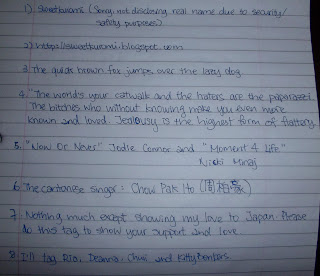 1) Sweetkurami (Sorry, not disclosing real name due to security/
safety purposes)
2) https://sweetkurami.blogspot.com
3. The quick brown fox jumps over the lazy dog.
4. "The world's your catwalk and the haters are the paparazzi.
The bitches who without knowing make you even more
known and loved. Jealousy is the highest form of flattery.
5. "Now Or Never" Jodie Connor and "Moment 4 Life"
Nicki Minaj
6. The cantonese singer: Chow Pak Ho (周柏豪)
7. Nothing much except showing my love to Japan. Please
do this tag to show your support and love.
8. I'll tag Rio, Deanna, and Kitty